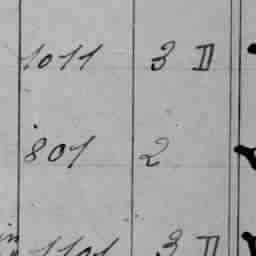 1011 3 II
801 2
1101 3 II